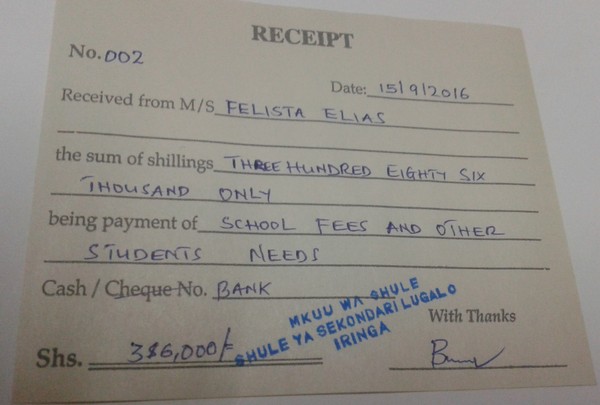 RECEIPT
No. 002
Date: 15/9/2016
Received from M/S FELISTA ELIAS
the sum of shillings THREE HUNDRED EIGHTY SIX
THOUSAND ONLY
being payment of SCHOOL FEES AND OTHER
STUDENTS NEEDS
Cash / Cheque No. BANK
MKUU WA SHULE
SHULE YA SEKONDARI LUGALO
IRINGA
With Thanks
Shs. 386,000/=